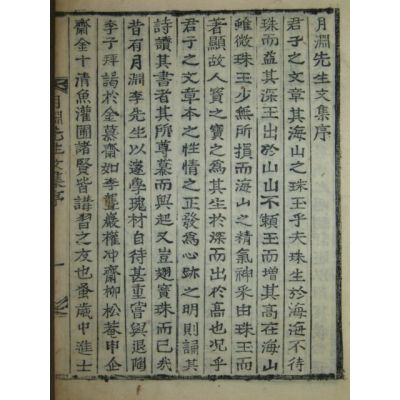 月淵先生文集序
君子之文章其海山之珠玉乎夫珠生於海海不待
珠而益其深玉出於山山不賴玉而增其高在海山
雖微珠玉少無所損而海山之精氣神采由珠玉而
著顯故人寶之寶之爲其生於深而出於高也況乎
君子之文章本之性情之正發爲心跡之明則誦其
詩讀其書者其所尊慕而興起又豈翅寶珠而已哉
昔有月淵李先生以邃學瑰材自待甚重嘗與退陶
李子拜謁於金慕齋如李聾巖權冲齋柳松菴申企
齋金十清魚灌圃諸賢皆講習之友也蚤歲中進士
月淵先生文集序 一